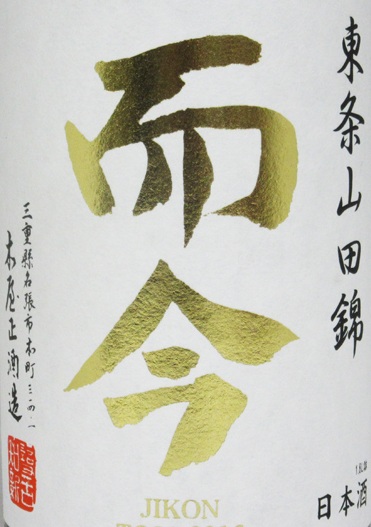 東条山田錦
而今
三重縣名張市本町三一四・一
木屋正酒造
JIKON
日本酒